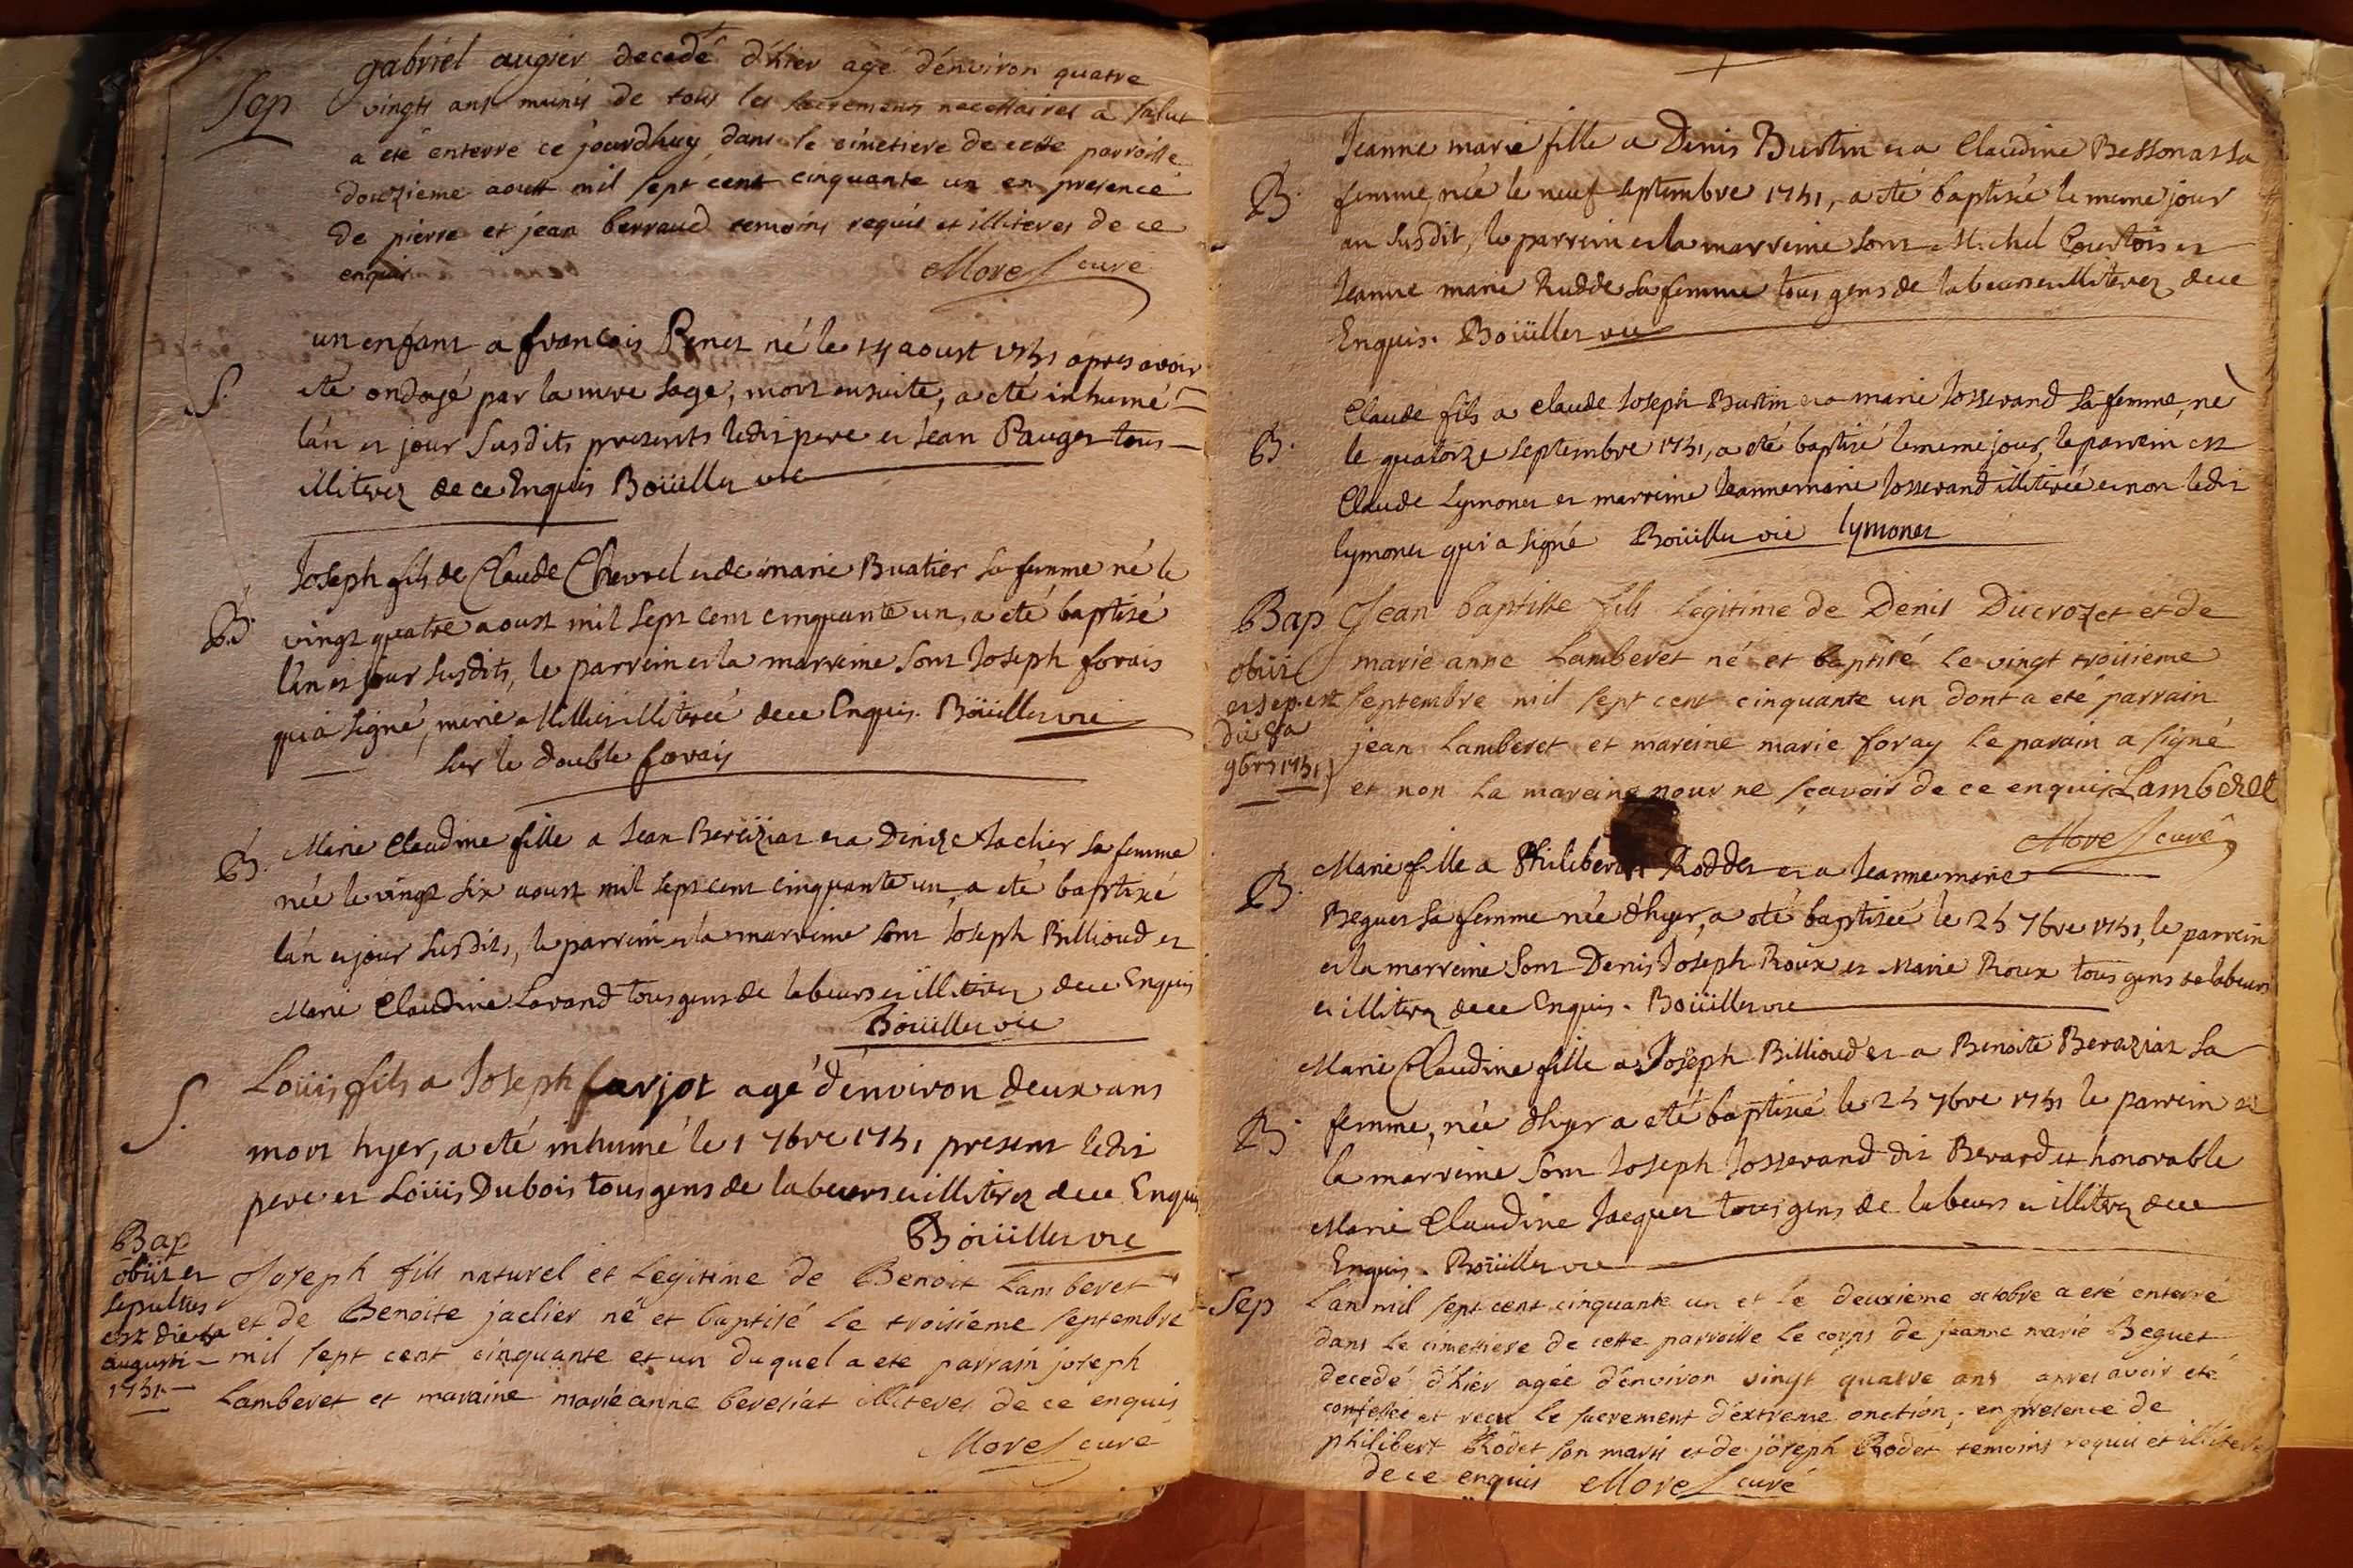 gabriel augier decedé d'hier agé d'environ quatre
Sep
vingts ans munis de tous les sacremens necessaires a salut
a eté enterré ce jourdhuy dans le cimetiere de cette parroisse
douzieme aoust mil sept cent cinquante un en presence
de pierre et jean berraud temoins requis et illiteres de ce
enquis Morel curé
un enfant a francois Penet né le 14 aoust 1751 apres avoir
S.
eté ondoyé par la mere sage, mort ensuite, a eté inhumé
lán et jour susdits presents ledit pere et Jean Pauget tous
illiterez de ce Enquis Boüillet vic
Joseph fils de Claude Chevrel et de marie Buatier sa femme né le
B.
vingt quatre aoust mil sept cent cinquante un, a eté baptisé
l'an et jour susdits, le parrein et la marreine sont Joseph forais
qui a signé, marie Millier illitereé de ce Enquis. Boüillet vic
sur le double forais
Marie Claudine fille a Jean Bereiziat et a Denize Jaclier sa femme
B.
née le vingt six aoust mil sept cent cinquante un, a eté baptixé
lán et jour susdits, le parrein et la marreine sont Joseph Billioud et
Marie Claudine Lorand tous gens de labeurs et illiterez de ce Enquis
Boüillet vic
Loüis fils a Joseph farjot agé d'environ deux ans
S.
mort hyer, a eté inhumé le 1 7bre 1751 present ledit
pere et Loüis Dubois tous gens de labeurs et illiterez de ce Enquis
Boüillet vic
Bap
obiit et
sepultus
est die
augusti
1751
Joseph fils naturel et legitime de Benoit Lamberet
et de Benoite jaclier né et baptisé le troisieme septembre
mil sept cent cinquante et un duquel a eté parrain joseph
Lamberet et maraine marie anne bereziat illiteres de ce enquis
Morel curé
Jeanne marie fille a Denis Burtin et a Claudine Bessonat sa
B.
femme, née le neuf septembre 1751, a eté baptisée le meme jour
an susdit, le parrein et la marreine sont Michel Courtois et
Jeanne marie Rudde sa femme tous gens de labeurs et illiterez de ce
Enquis. Boüillet vic
Claude fils a Claude Joseph Burtin et a marie Josserand sa femme, né
B.
le quatorze septembre 1751, a eté baptisé le meme jour, le parrein est
Claude Lymonet et marreine Jeannemarie Josserand illitereé et non ledit
lymonet qui a signé Boüillet vic lymonet
Bap
obiit
et sepult est
die
9bris 1751
Jean baptiste fils legitime de Denis Ducrozet et de
marie anne Lamberet né et baptisé le vingt troisieme
septembre mil sept cent cinquante un dont a eté parrain
jean Lamberet et mareine marie foray le parain a signé
et non la mareine pour ne sçavoir de ce enquis Lamberet
Morel curé
Marie fille a Philibert Roddet et a Jeanne marie
B.
Beguet sa femme née d'hyer, a eté baptisée le 25 7bre 1751, le parrein
et la marreine sont Denis Joseph Roux et Marie Roux tous gens de labeurs
et illiterez de ce Enquis. Boüillet vic
Marie Claudine fille a Joseph Billioud et a Benoite Beraziat sa
B.
femme, née d'hyer a eté baptisée le 25 7bre 1751 le parrein et
la marreine sont Joseph Josserand dit Berard et honorable
Marie Claudine Jacquet tous gens de labeurs et illiterez de ce
Enquis. Boüillet vic
Sep
L'an mil sept cent cinquante un et le deuxieme octobre a eté enterré
dans le cimettiere de cette parroisse le corps de jeanne marie Beguet
decedé d'hier agée d'environ vingt quatre ans apres avoir eté
confessée et receu le sacrement d'extreme onction, en presence de
philibert Rodet son marit et de joseph Rodet temoins requis et illiteres
de ce enquis Morel curé